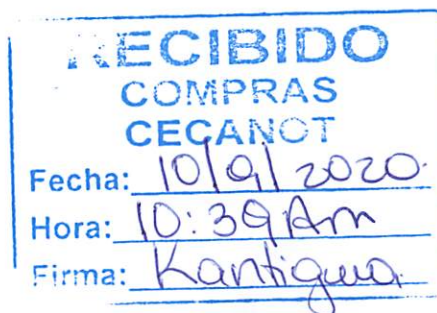 RECIBIDO
COMPRAS
CECANOT
Fecha: 10/9/2020.
Hora: 10:39 Am
Firma: Kantigua